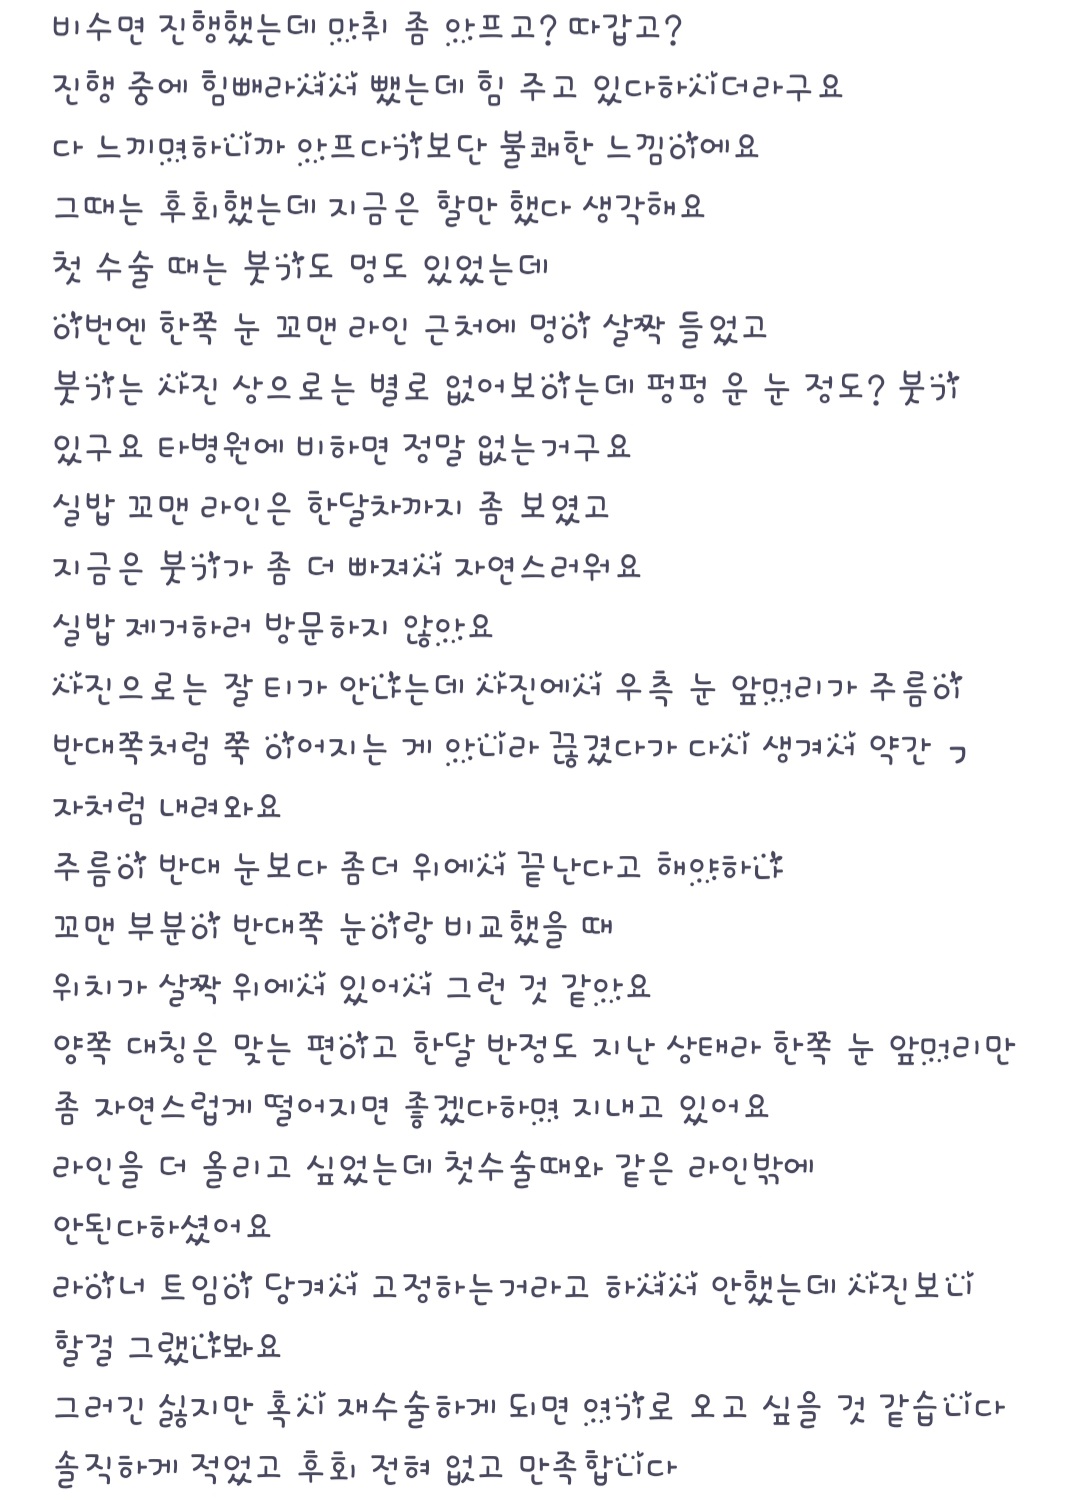 비수면 진행했는데 마취 좀 아프고? 따갑고?
진행 중에 힘빼라셔서 뺐는데 힘 주고 있다하시더라구요
다 느끼며하니까 아프다기보단 불쾌한 느낌이에요
그때는 후회했는데 지금은 할만 했다 생각해요
첫 수술 때는 붓기도 멍도 있었는데
이번엔 한쪽 눈 꼬맨 라인 근처에 멍이 살짝 들었고
붓기는 사진 상으로는 별로 없어보이는데 펑펑 운 눈 정도? 붓기
있구요 타병원에 비하면 정말 없는거구요
실밥 꼬맨 라인은 한달차까지 좀 보였고
지금은 붓기가 좀 더 빠져서 자연스러워요
실밥 제거하러 방문하지 않아요
사진으로는 잘 티가 안나는데 사진에서 우측 눈 앞머리가 주름이
반대쪽처럼 쭉 이어지는 게 아니라 끊겼다가 다시 생겨서 약간 ㄱ
자처럼 내려와요
주름이 반대 눈보다 좀더 위에서 끝난다고 해야하나
꼬맨 부분이 반대쪽 눈이랑 비교했을 때
위치가 살짝 위에서 있어서 그런 것 같아요
양쪽 대칭은 맞는 편이고 한달 반정도 지난 상태라 한쪽 눈 앞머리만
좀 자연스럽게 떨어지면 좋겠다하며 지내고 있어요
라인을 더 올리고 싶었는데 첫수술때와 같은 라인밖에
안된다하셨어요
라이너 트임이 당겨서 고정하는거라고 하셔서 안했는데 사진보니
할걸 그랬나봐요
그러긴 싫지만 혹시 재수술하게 되면 여기로 오고 싶을 것 같습니다
솔직하게 적었고 후회 전혀 없고 만족합니다